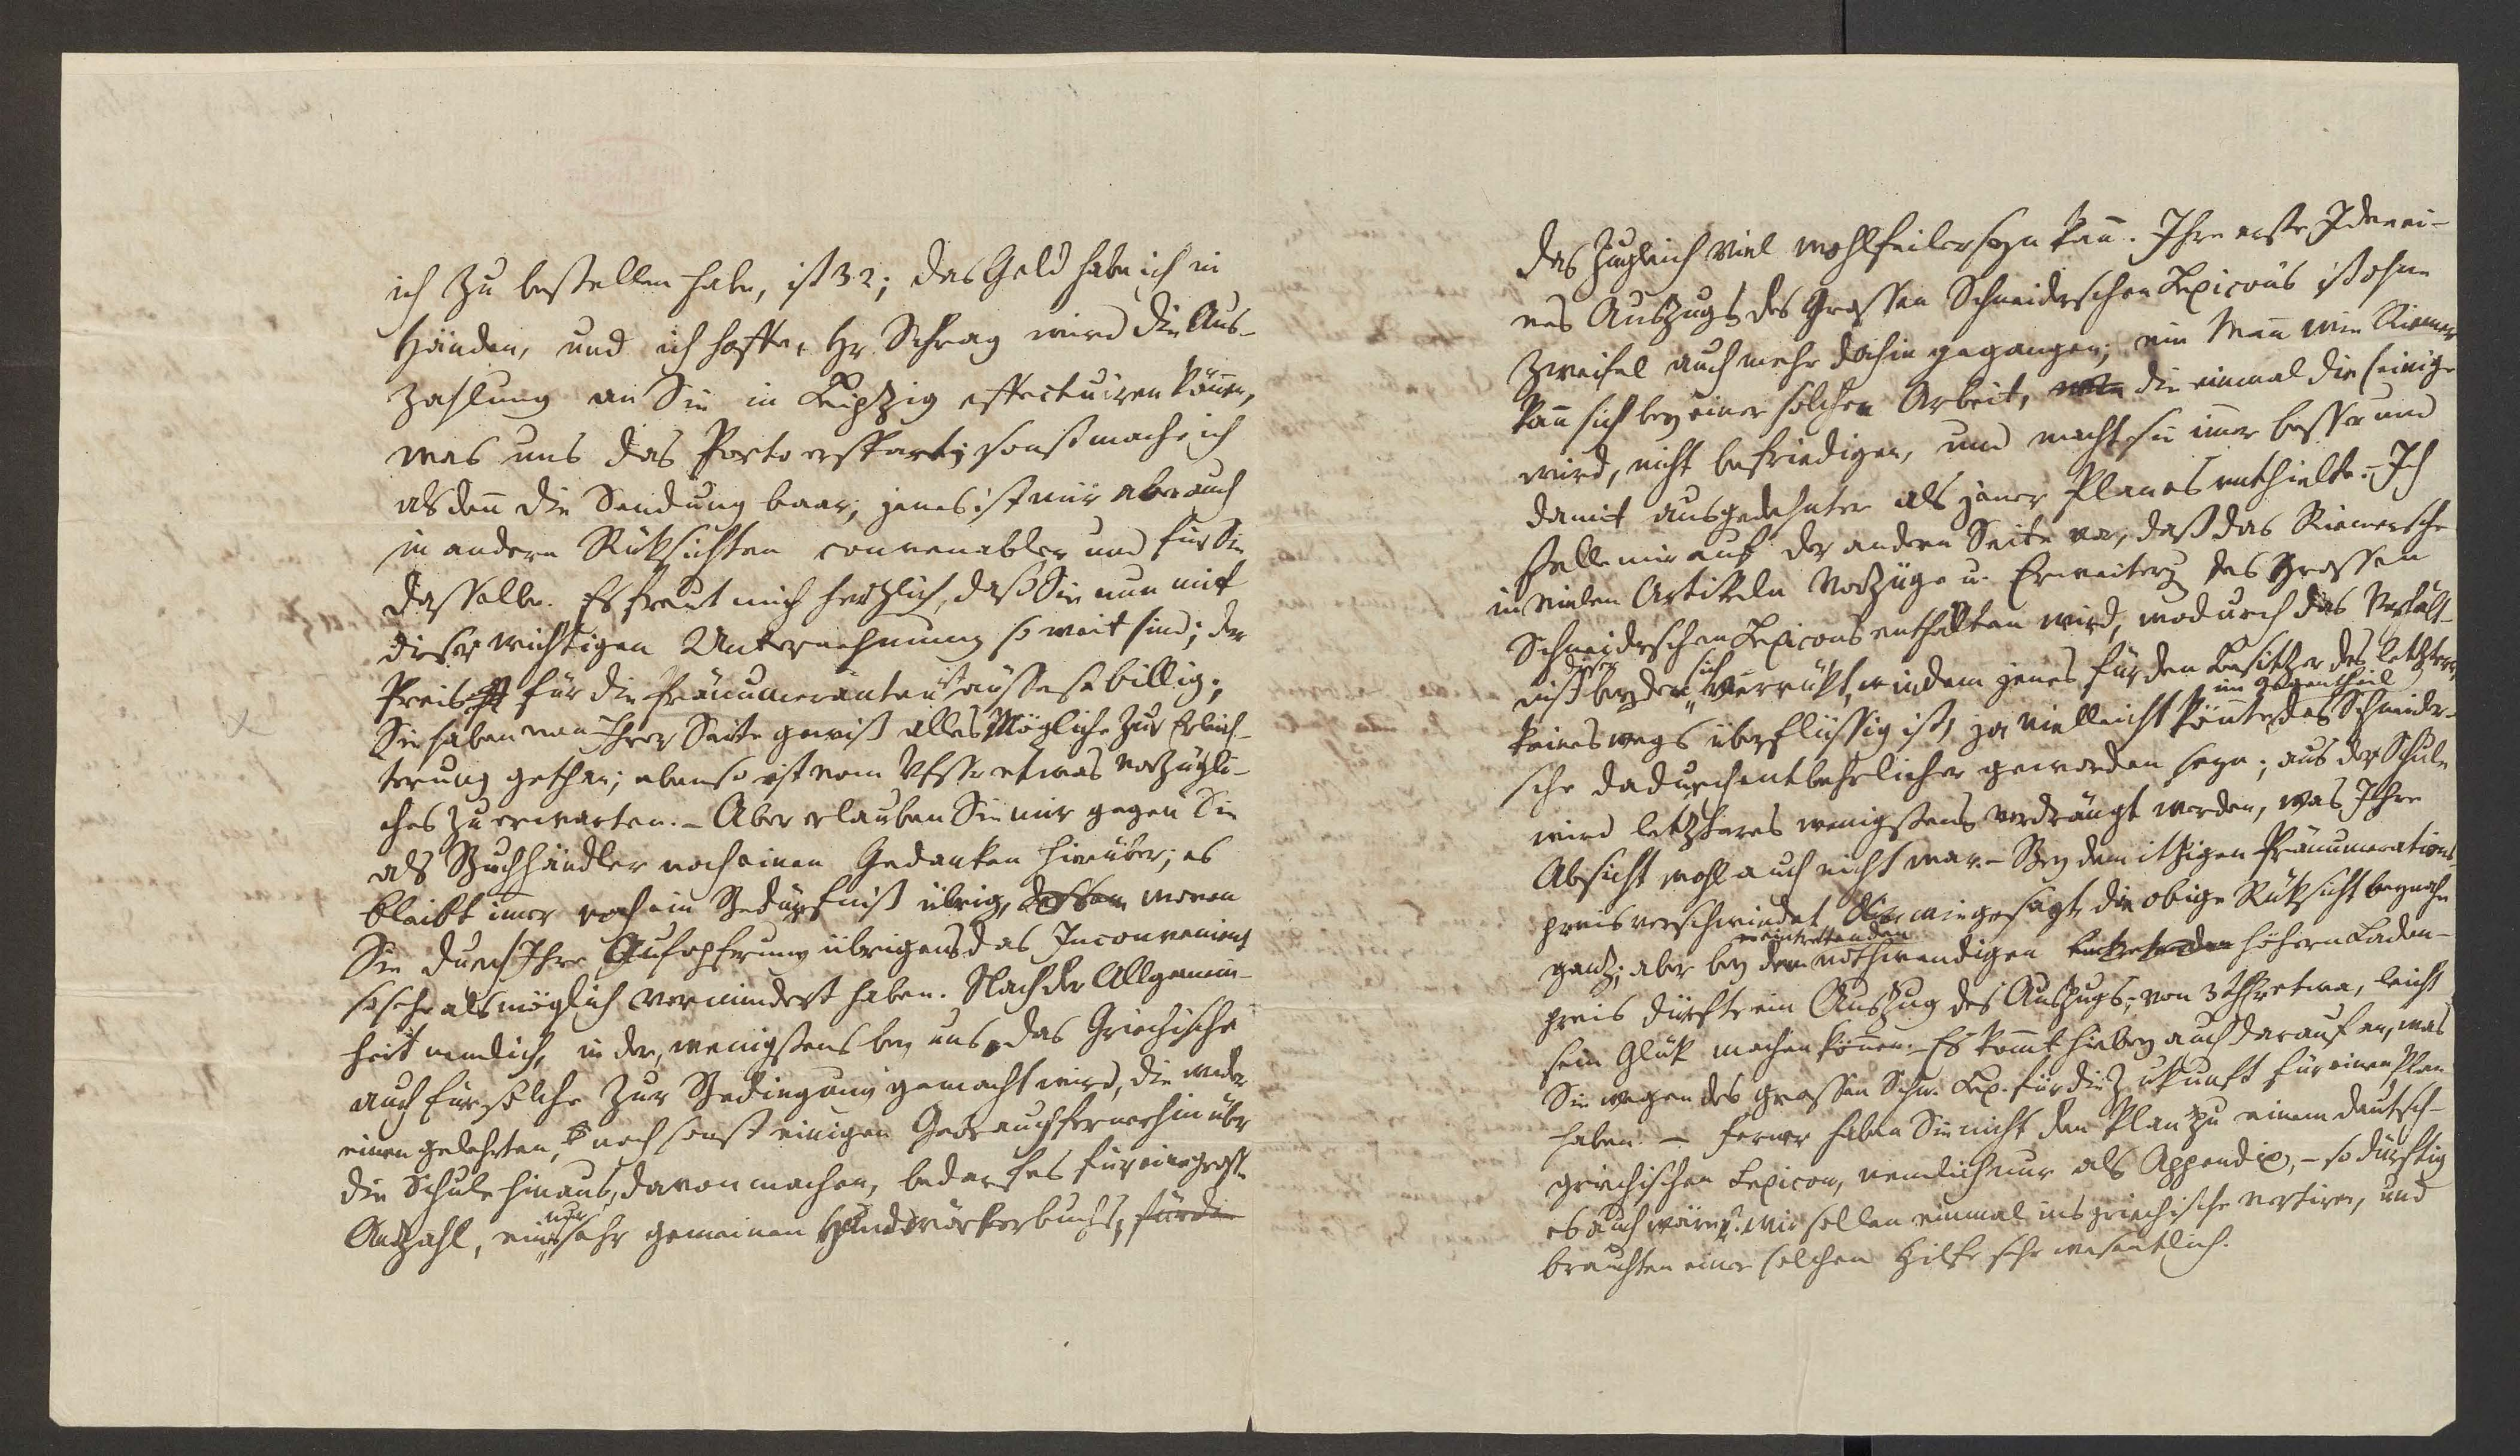 ich zu bestellen habe, ist 32; das Geld habe ich in
Händen, und ich hoffe, Hr. Schrag wird die Aus-
zahlung an Sie in Leipzig effectuiren können,
was uns das Porto erspart; sonst mache ich
alsdenn die Sendung baar; jenes ist mir aber auch
in andern Rüksichten convenabler und für Sie
dasselbe. Es freut mich herzlich, daß Sie nun mit
dieser wichtigen Unternehmung so weit sind; der
Preis für die Pränumeranten ist äusserst billig;
Sie haben von Ihrer Seite gewiß alles Mögliche zur Erleich-
terung gethan; ebenso ist vom Vfsser etwas vorzügli-
ches zu erwarten. – Aber erlauben Sie mir gegen Sie
als Buchhändler noch einen Gedanken hierüber; es
bleibt imer noch ein Bedürfniß übrig, dessen wovon
Sie durch Ihre Aufopfrung übrigens das Inconvenienz
so sehr als möglich vermindert haben. Nach der Allgemein-
heit nemlich, in der, wenigstens bey uns, das Griechische
auch für solche zur Bedingung gemacht wird, die weder
einen gelehrten, noch sonst einigen Gebrauch fernerhin über
die Schule hinaus, davon machen, bedarf es für eine grosse
Anzahl, eines nur sehr gemeinen Handwörterbuchs, für die
das zugleich viel wohlfeiler seyn kan. Ihre erste Idee ei-
nes Auszugs des Grossen Schneiderschen Lexicons ist ohne
Zweifel auch mehr dahin gegangen; ein Man wie Riemer
kan sich bey einer solchen Arbeit, die einmal die seinige
wird, nicht befriedigen, und macht sie imer besser und
damit ausgedehnter als jener Plan es enthielte. – Ich
stelle mir auf der andern Seite vor, daß das Riemersche
in vielen Artikeln Vorzüge u. Erweiterg des Grossen
Schneiderschen Lexicons enthalten wird, wodurch das Verhält-
niß dieser beyden sich verrükt, indem jenes für den Besitzer des letztern
keineswegs überflüssig ist, ja vielleicht könnte im Gegentheil das Schneider-
sche dadurch entbehrlicher geworden seyn; aus der Schule
wird letzteres wenigstens verdrängt werden, was Ihre
Absicht wohl auch nicht war. – Bey dem itzigen Pränumerations-
preis verschwindet wie gesagt die obige Rüksicht beynahe
ganz; aber bey dem nothwendigen eintrettenden höhern Laden-
preis dürfte ein Auszug des Auszugs, von 3 Thlr etwa, leicht
sein Glük machen können. – Es komt hiebey auch darauf an, was
Sie wegen des grossen Schn. Lex. für die Zukunft für einen Plan
haben. – Ferner haben Sie nicht den Plan zu einem deutsch-
griechischen Lexicon, nemlich nur als Appendix, – so dürftig
es auch wäre? wir sollen einmal ins griechische vertiren, und
brauchten einer solchen Hilfe sehr wesentlich.